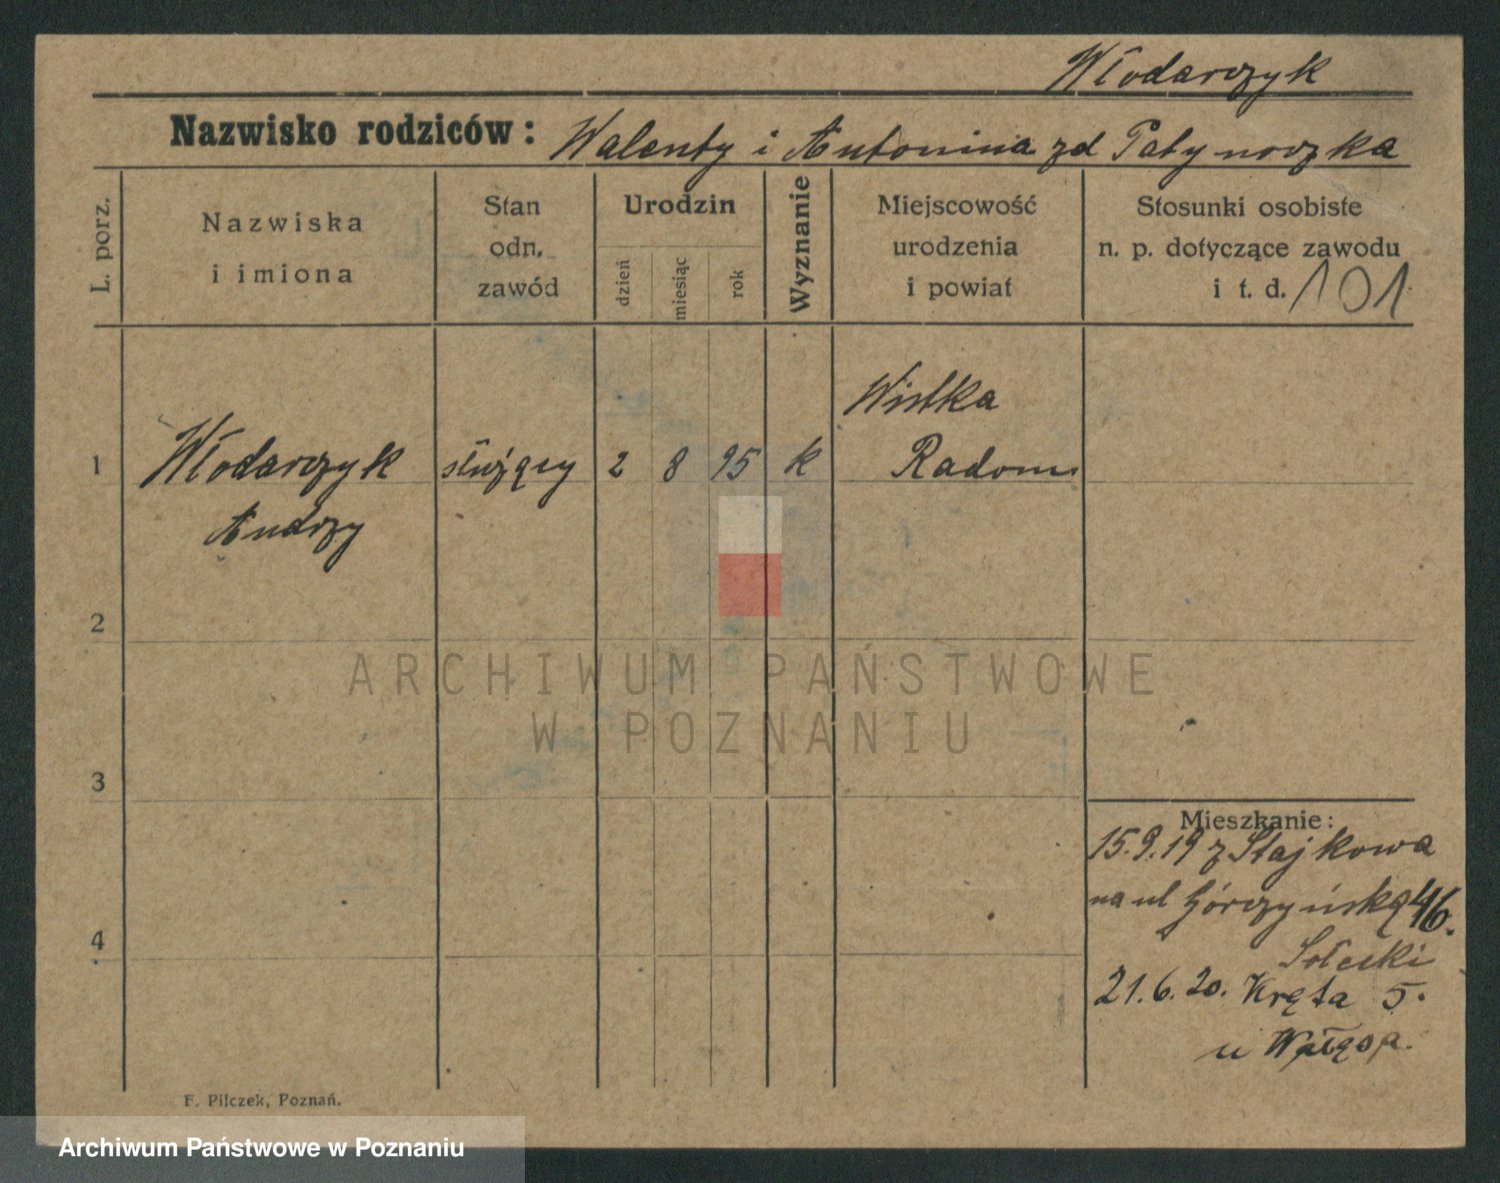 Włodarczyk
Nazwisko rodziców: Walenty i Antonina zd
L. porz.
Nazwiska
i imiona
Stan
odn.
zawód
Urodzin
dzień
miesiąc
rok
Wyznanie
Miejscowość
urodzenia
i powiat
Stosunki osobiste
n. p. dotyczące zawodu
i t. d. 101
1
Włodarczyk
Andrzy
służący
2
8
95
k
Radom
2
ARCHIWUM PAŃSTWOWE
W POZNANIU
3
4
Mieszkanie:
15.9.19 z Stajkowa
na ul Górczyńską 46.
Sołecki
21.6.20. Kręta 5.
u Wałęsa.
F. Pilczek, Poznań.
Archiwum Państwowe w Poznaniu